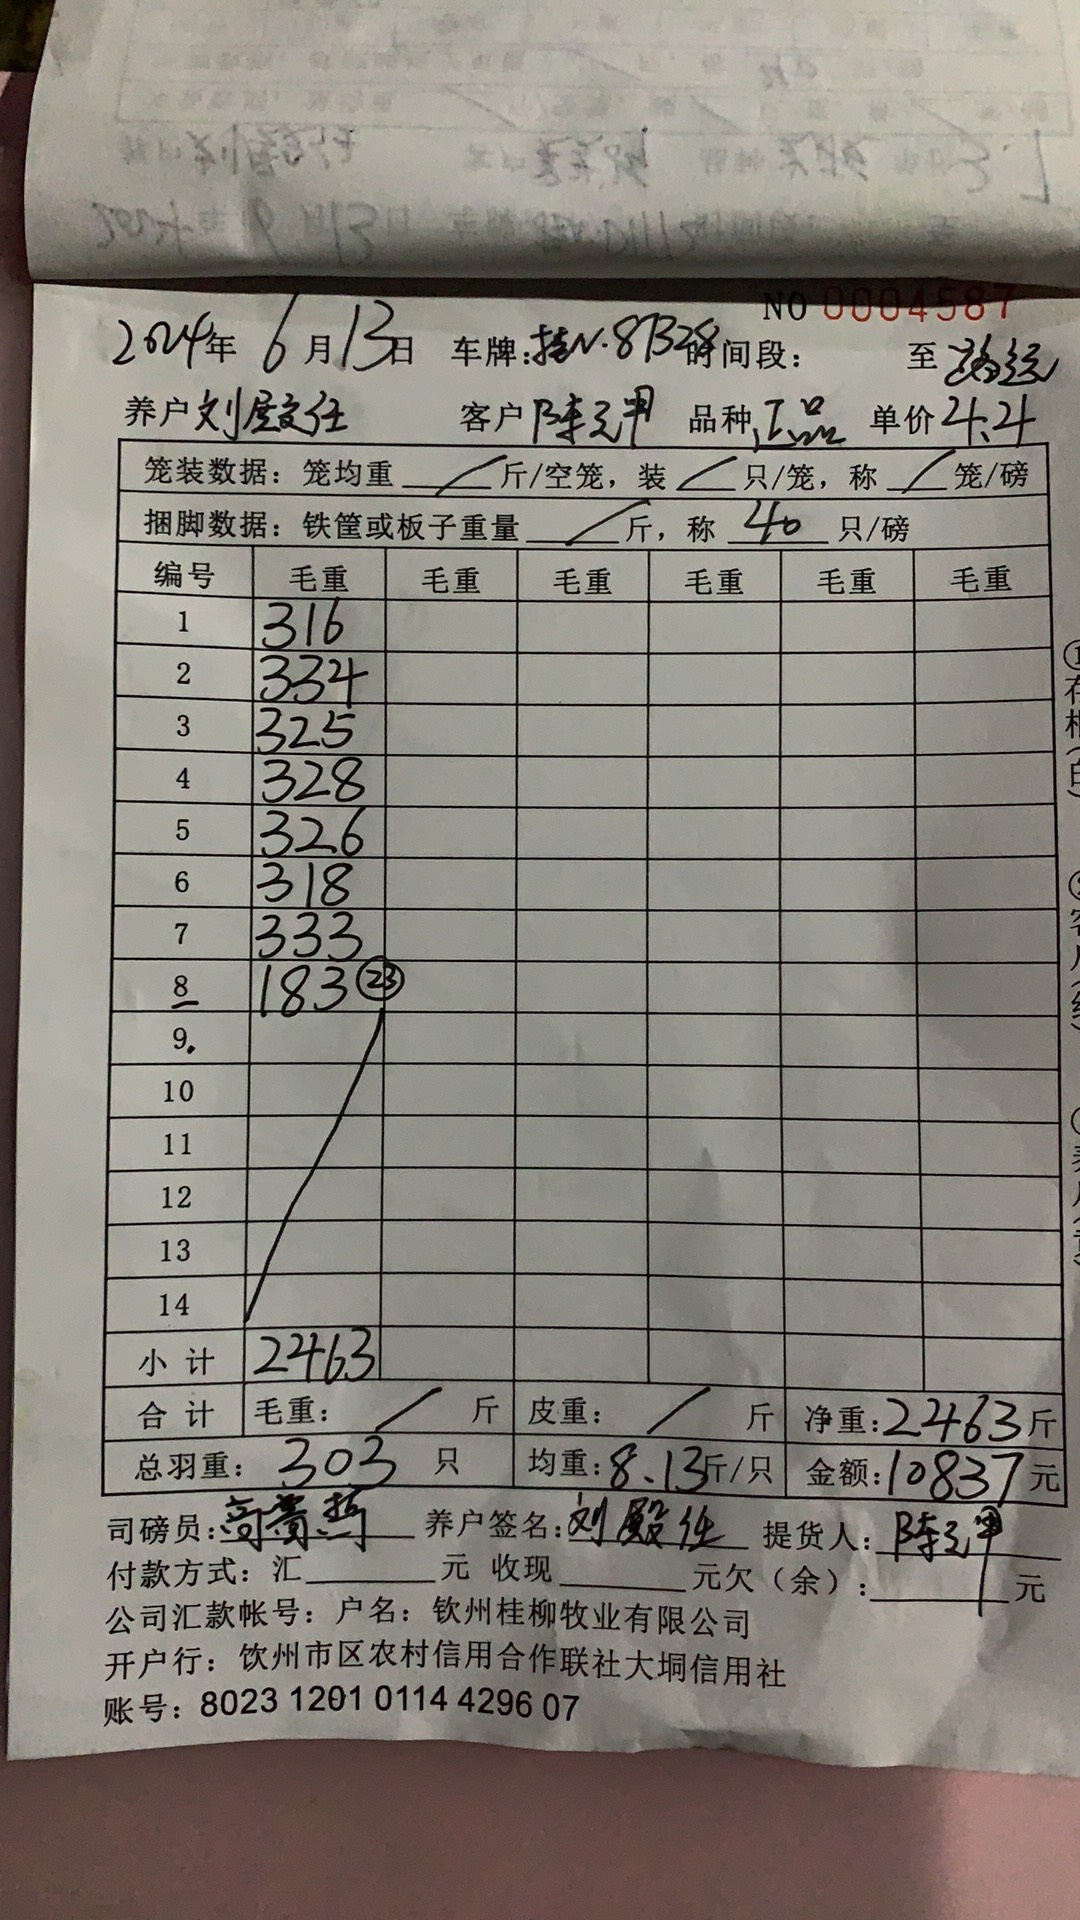 NO 0004587
2024年 6月13日 车牌:桂N.87328 时间段: 至
养户 刘殿任 客户 陈元甲 品种 正品 单价 4.4
笼装数据: 笼均重 / 斤/空笼, 装 / 只/笼, 称 / 笼/磅
捆脚数据: 铁筐或板子重量 / 斤, 称 40 只/磅
编号 毛重 毛重 毛重 毛重 毛重 毛重
1 316
2 334
3 325
4 328
5 326
6 318
7 333
8 183 ㉓
9
10
11
12
13
14
小计 2463
合计 毛重: / 斤 皮重: / 斤 净重:2463斤
总羽重: 303 只 均重:8.13斤/只 金额:10837元
司磅员: 养户签名:刘殿任 提货人:陈元甲
付款方式: 汇 元 收现 元欠(余): 元
公司汇款帐号: 户名: 钦州桂柳牧业有限公司
开户行: 饮州市区农村信用合作联社大垌信用社
账号: 8023 1201 0114 4296 07